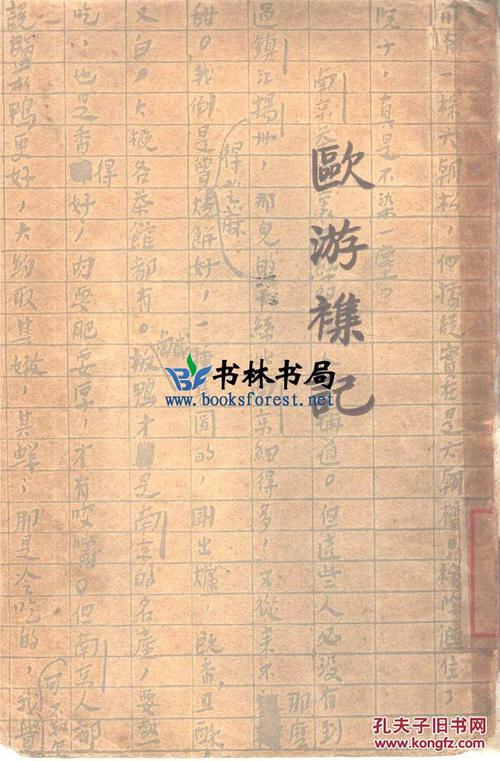 歐游襍記
前有一株六朝松，但據說實在是六朝檜。檜蔭遮住了
院子，真是不染一塵。
南京
稱道。但這些人必没有到
過鎮江揚州，那兒的干絲
細得多，又從來不那麼
甜。我倒是覺
燒餅好，一種
圓的，剛出爐，既香，且酥
又白，大概各茶館都有。板鴨才是南京的名產，要熱
吃，也是香得好；肉要肥要厚，才有咬嚼。但南京人都
說鹽水鴨更好，大約取其嫩，其鮮；那是冷吃的，我
书林书局
www.booksforest.net
孔夫子旧书网
www.kongfz.com